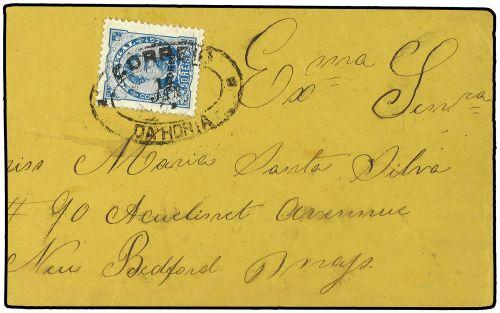 CORREIO
DA HORTA
Exma Senra
iss Maria Santa Silva
# 90 Acuchnet Avennue
New Bedford Mass